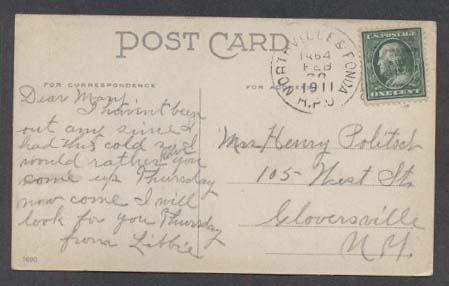 POST CARD
FOR CORRESPONDENCE
Dear Mary
I haven't been
out any since I
had this cold so I
would rather have you
come up Thursday
now come I will
look for you Thursday
from Libbie
7690
NORTHVILLE & FONDA
FEB
1911
R.P.O
U.S. POSTAGE
ONE CENT
FOR
Mrs Henry Politsch
105 West St.
Gloversville
N.Y.